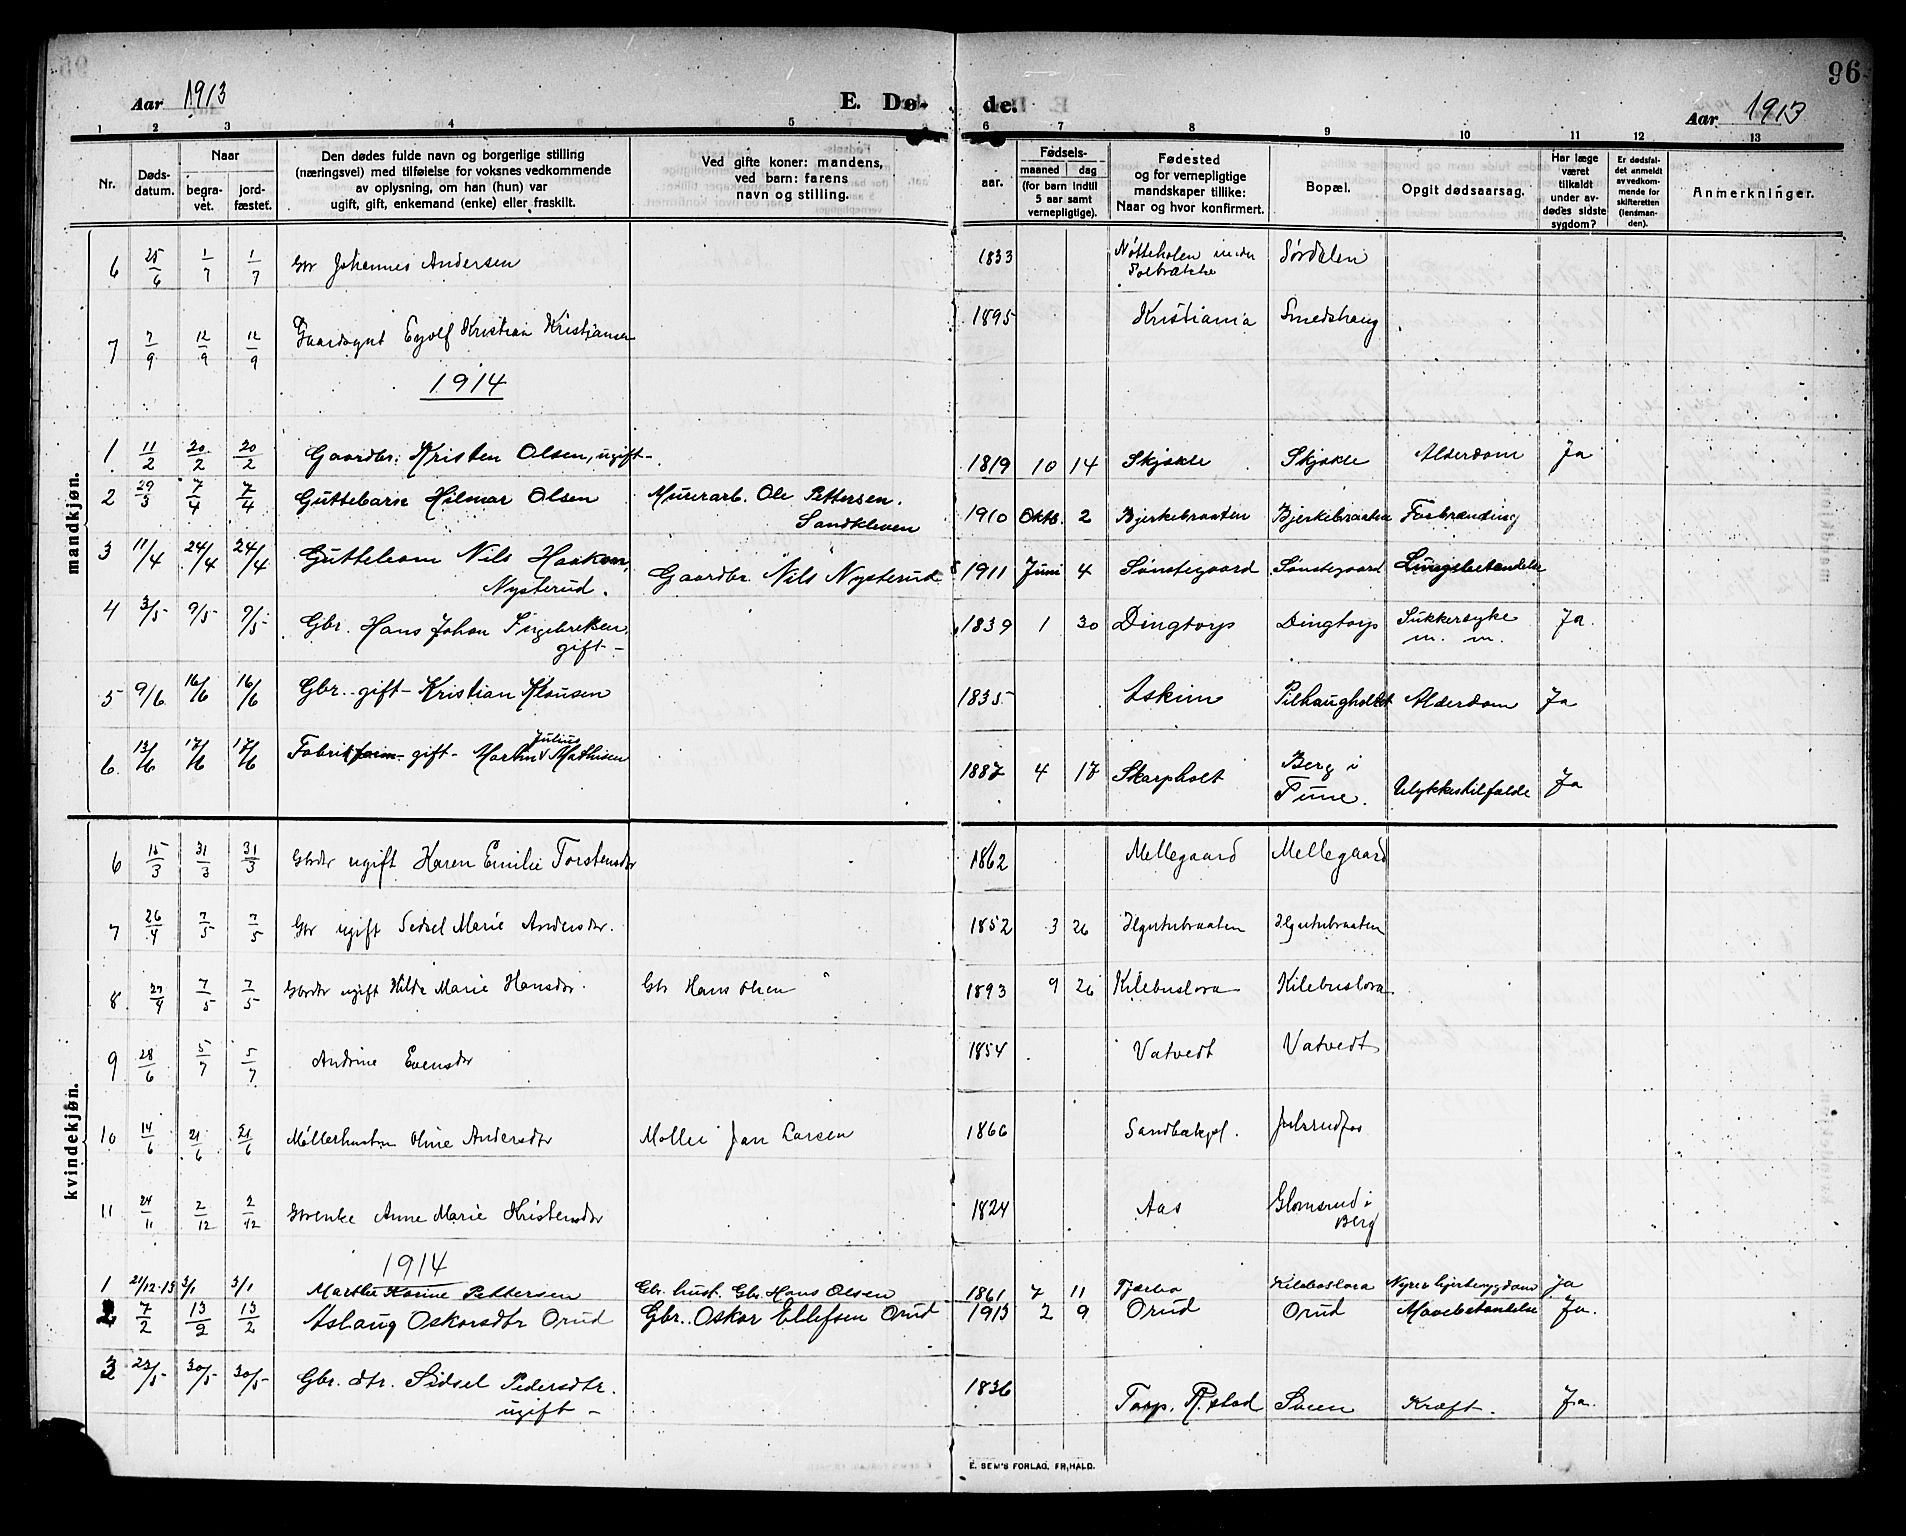 96
Aar 1913
E. Dø-
de.
Aar 1913
1 2 3 4 5 6 7 8 9 10 11 12 13
Nr.
Døds-
datum.
Naar
begra-
vet.
jord-
fæstet.
Den dødes fulde navn og borgerlige stilling
(næringsvei) med tilføielse for voksnes vedkommende
av oplysning, om han (hun) var
ugift, gift, enkemand (enke) eller fraskilt.
Ved gifte koner: mandens,
ved barn: farens
navn og stilling.
Fødsels-
aar.
maaned dag
(for barn indtil
5 aar samt
vernepligtige).
Fødested
og for vernepligtige
mandskaper tillike:
Naar og hvor konfirmert.
Bopæl.
Opgit dødsaarsag.
Har læge
været
tilkaldt
under av-
dødes sidste
sygdom?
Er dødsfal-
det anmeldt
av vedkom-
mende for
skifteretten
(lensman-
den).
Anmerkninger.
mandkjøn.
6 25/6 1/7 1/7 Gbr Johannes Andersen 1833 Sørdalen
7 7/9 12/9 12/9 Eyolf Kristian Kristjansen 1895 Kristiania Smedshaug
1914
1 11/2 20/2 20/2 Gaardbr. Kristen Olsen, ugift- 1819 10 14 Skjøkle Skjøkle Alderdom Ja
2 29/3 7/4 7/4 Guttebarn Hilmar Olsen Murerarb. Ole Pettersen.
Sandkleven 1910 Oktb. 2 Bjerkebraaten Bjerkebraaten Forbrænding
3 11/4 24/4 24/4 Guttebarn Nils Haakon Gaardbr. Nils Nysterud 1911 Juni 4 Sønstegaard Sønstegaard Lungebetændelse
Nysterud.
4 3/5 9/5 9/5 Gbr. Hans Johan Ingebretsen, 1839 1 30 Dingtorp Dingtorp Sukkersyke Ja.
gift- m. m.
5 9/6 16/6 16/6 Gbr. gift- Kristian Klausen 1835 Askim Pilhaugholtet Alderdom Ja
6 13/6 17/6 17/6 gift- Martin Julius Mathisen 1887 4 17 Skarpholt Berg i
Tune. Ulykkestilfælde Ja
kvindekjøn.
6 15/3 31/3 31/3 Gbrdtr ugift Karen Emilie Torstensdtr 1862 Mellegaard Mellegaard
7 26/4 7/5 7/5 Gbr ugift Sidsel Marie Andersdtr. 1852 3 26
8 27/4 7/5 7/5 Gbrdtr ugift Hilda Marie Hansdtr. Gbr Hans Olsen 1893 9 26 Kilebuslora Kilebuslora
9 28/6 5/7 5/7 Andrine Evensdtr 1854 Vatvedt Vatvedt
10 14/6 21/6 21/6 Møllerhustru Oline Andersdtr Møller Jan Larsen 1866 Sandbækpl. Julsrudfos
11 24/11 2/12 2/12 Gbrenke Anne Marie Kristensdtr 1824 Aas Glomsrud i
Berg
1914
1 21/12-13 3/1 3/1 Marthe Karine Pettersen Gbr. hust. Gbr. Hans Olsen 1861 7 11 Kileboslora Ja
2 7/2 13/2 13/2 Aslaug Oskarsdtr Orud Gbr. Oskar Ellefsen Orud 1913 2 9 Orud Orud Mavebetændelse Ja.
3 23/5 30/5 30/5 Gbr. dtr. Sidsel Pedersdtr. 1836 Torp, R.stad Svuen Kræft. Ja.
ugift-
E. SEM'S FORLAG, FR,HALD.